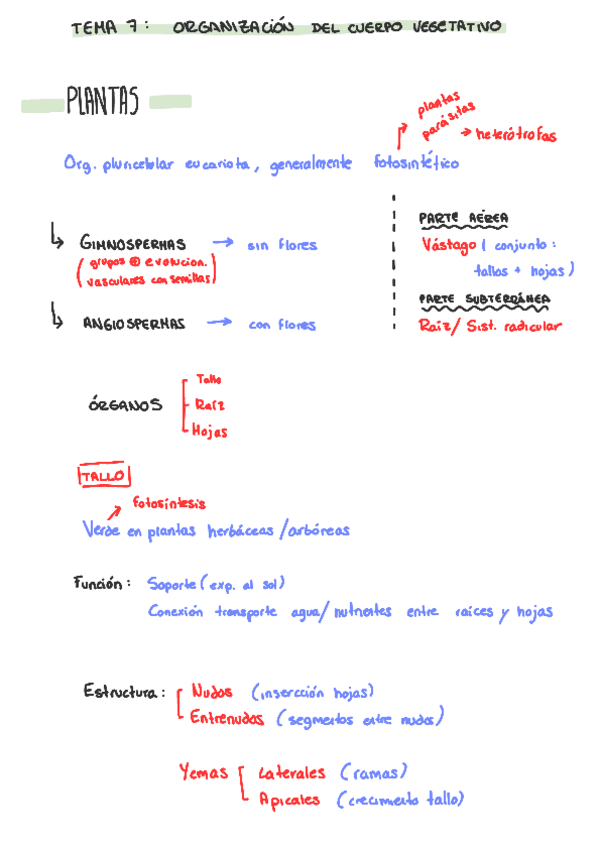 TEMA 7: ORGANIZACIÓN DEL CUERPO VEGETATIVO
PLANTAS
plantas
parásitas
→ heterótrofas
Org. pluricelular eucariota, generalmente fotosintético
↳ GIMNOSPERMAS → sin flores
(grupos ⊕ evolucion.
vasculares con semillas)
↳ ANGIOSPERMAS → con flores
PARTE AÉREA
Vástago (conjunto:
tallos + hojas)
PARTE SUBTERRÁNEA
Raíz/ Sist. radicular
ÓRGANOS
Tallo
Raíz
Hojas
TALLO
fotosíntesis
Verde en plantas herbáceas/arbóreas
Función: Soporte (exp. al sol)
Conexión transporte agua/nutrientes entre raíces y hojas
Estructura: Nudos (insercción hojas)
Entrenudos (segmentos entre nudos)
Yemas Laterales (ramas)
Apicales (crecimiento tallo)